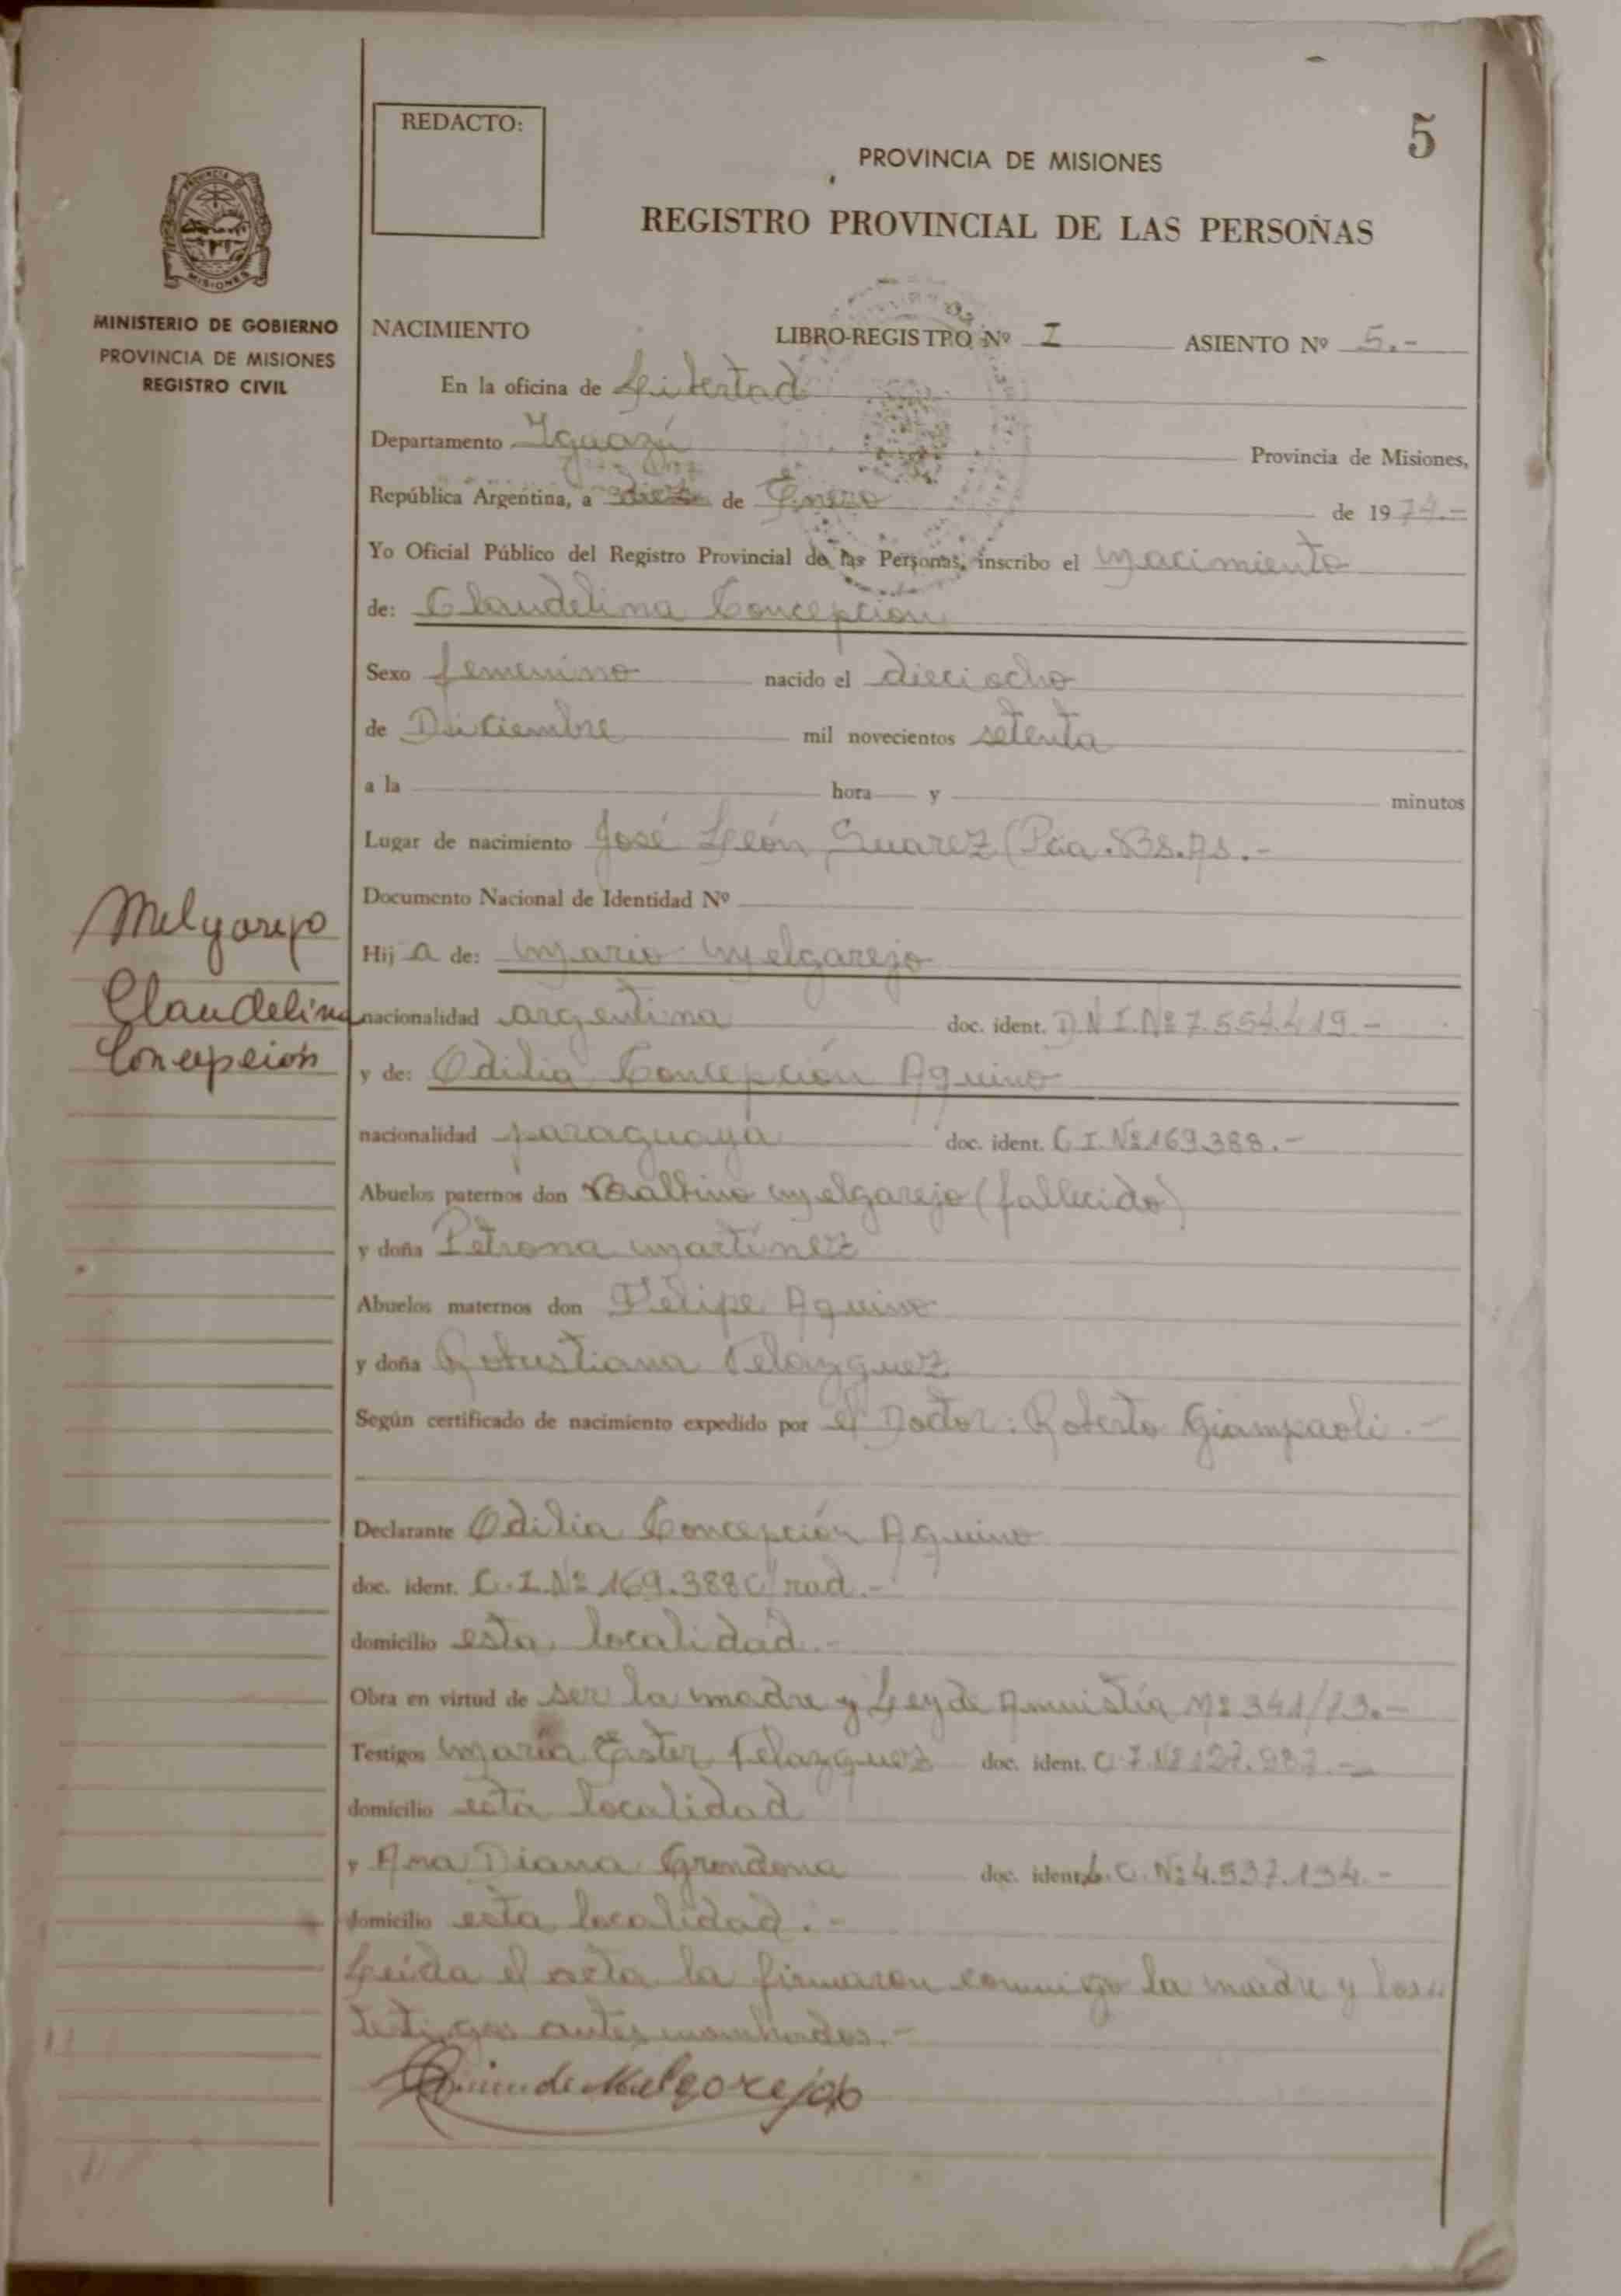 5
REDACTO:
PROVINCIA DE MISIONES
REGISTRO PROVINCIAL DE LAS PERSONAS
MINISTERIO DE GOBIERNO
PROVINCIA DE MISIONES
REGISTRO CIVIL
NACIMIENTO LIBRO-REGISTRO Nº I ASIENTO Nº 5.-
En la oficina de Libertad
Departamento Iguazú Provincia de Misiones,
República Argentina, a diez de Enero de 1974.-
Yo Oficial Público del Registro Provincial de las Personas, inscribo el nacimiento
de: Claudelina Concepcion
Sexo femenino nacido el dieciocho
de Diciembre mil novecientos setenta
a la hora y minutos
Lugar de nacimiento José León Suarez (Pcia. BS.AS.-
Documento Nacional de Identidad Nº
Melgarejo
Claudelina
Concepción
Hij a de: Mario Melgarejo
nacionalidad argentina doc. ident. D.N.I.Nº 7.554.419.-
y de: Odilia Concepción Aquino
nacionalidad paraguaya doc. ident. C.I.Nº 169.388.-
Abuelos paternos don Balbino Melgarejo (fallecido)
y doña Petrona Martínez
Abuelos maternos don Felipe Aquino
y doña Robustiana Velazquez
Según certificado de nacimiento expedido por el Doctor: Roberto Giampaoli.-
Declarante Odilia Concepción Aquino
doc. ident. C.I.Nº 169.388 C/rad.-
domicilio esta localidad.-
Obra en virtud de ser la madre y Ley de Amnistía Nº 341/73.-
Testigos María Ester Velazquez doc. ident. C.I.Nº 127.987.-
domicilio esta localidad
y Ana Diana Grondona doc. ident. L.C. Nº 4.937.134.-
domicilio esta localidad.-
Leída el acta la firmaron conmigo la madre y los
testigos antes nombrados.-
de Melgarejo